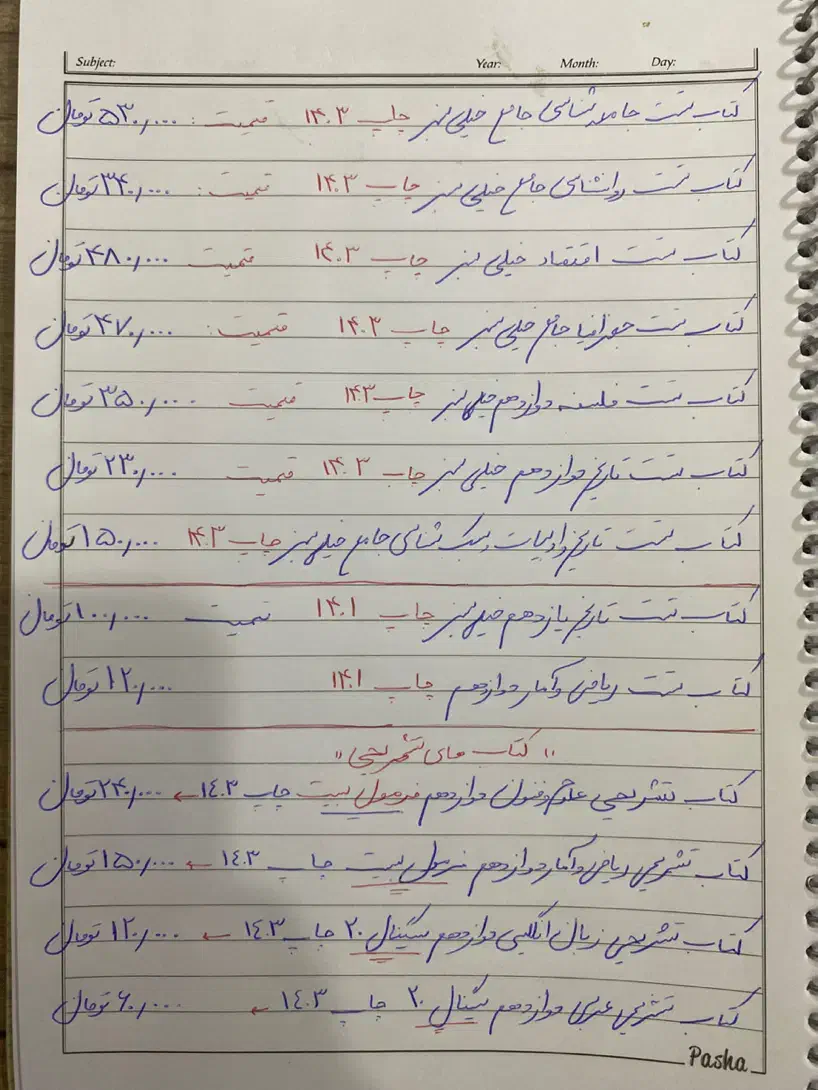 Subject: Year: Month: Day:
کتاب تست جامعه شناسی جامع خیلی سبز چاپ ۱۴۰۳ قیمت: ۵۳۰,۰۰۰ تومان
کتاب تست روانشناسی جامع خیلی سبز چاپ ۱۴۰۳ قیمت: ۳۴۰,۰۰۰ تومان
کتاب تست اقتصاد خیلی سبز چاپ ۱۴۰۳ قیمت ۴۸۰,۰۰۰ تومان
کتاب تست جغرافیا جامع خیلی سبز چاپ ۱۴۰۳ قیمت: ۴۷۰,۰۰۰ تومان
کتاب تست فلسفه دوازدهم خیلی سبز چاپ ۱۴۰۳ قیمت ۳۵۰,۰۰۰ تومان
کتاب تست تاریخ دوازدهم خیلی سبز چاپ ۱۴۰۳ قیمت ۲۳۰,۰۰۰ تومان
کتاب تست تاریخ ادبیات و سبک شناسی جامع خیلی سبز چاپ ۱۴۰۳ ۱۵۰,۰۰۰ تومان
کتاب تست تاریخ یازدهم خیلی سبز چاپ ۱۴۰۱ قیمت ۱۰۰,۰۰۰ تومان
کتاب تست ریاضی و آمار دوازدهم چاپ ۱۴۰۱ ۱۲۰,۰۰۰ تومان
"کتاب های تشریحی"
کتاب تشریحی علوم و فنون دوازدهم فرمول بیست چاپ ۱۴۰۳ ← ۲۴۰,۰۰۰ تومان
کتاب تشریحی ریاضی و آمار دوازدهم فرمول بیست چاپ ۱۴۰۳ ← ۱۵۰,۰۰۰ تومان
کتاب تشریحی زبان انگلیسی دوازدهم سیگنال ۲۰ چاپ ۱۴۰۳ ← ۱۲۰,۰۰۰ تومان
کتاب تشریحی عربی دوازدهم سیگنال ۲۰ چاپ ۱۴۰۳ ← ۶۰,۰۰۰ تومان
Pasha